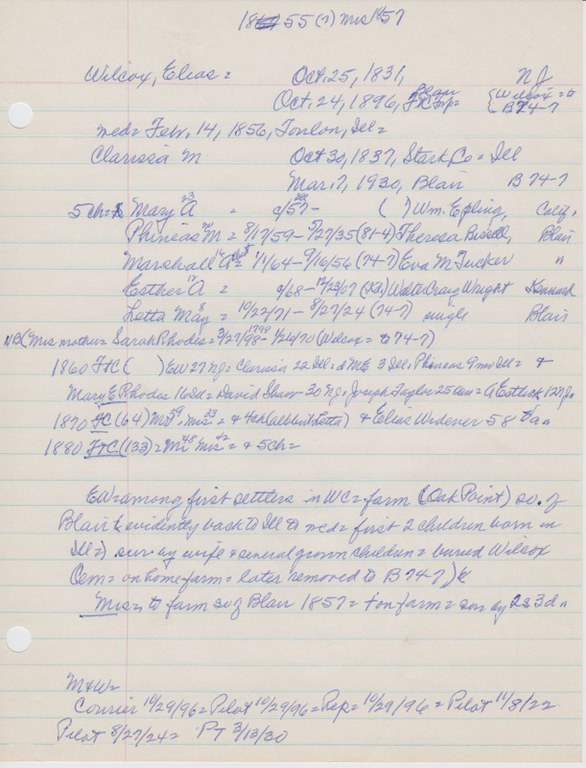 1855 (?) Mrs 1857
Wilcox, Elias = Oct. 25, 1831, NJ
Oct. 24, 1896, Blair FtC Twp = {Wilcox = to B 74-7
med = Feb. 14, 1856, Toulon, Ill =
Clarissa M Oct 30, 1837, Stark Co = Ill
Mar. 7, 1930, Blair B 74-7
5 ch = Mary A = c/57 - ( ) Wm. Epling, Calif,
Phineas M = 8/17/59 - 5/27/35 (81-4) Theresa Russell, Blair
Marshall A = 1/1/64 - 9/10/56 (74-7) Eva M Tucker "
Esther A = c/68 - 12/23/07 Walter Craig Wright Kennard
Letta May = 10/22/71 - 8/27/24 (74-7) single Blair
NB (Mrs mother = Sarah Rhodes = 3/27/1798 - 1/26/70 (Wilcox = to 74-7)
1860 FtC ( ) EW 27 NJ = Clarissa 22 Ill = d ME 3 Ill, Phineas 9 mo Ill = &
Mary E Rhodes 16 Ind = David Shaw 30 NJ = Joseph Taylor 25 = A Esthel 12 NJ
1870 FC (64) Mr 39, Mrs 33 = & 4 ch (all but Letta) & Elias Widener 58 Pa
1880 FtC (133) = Mr 48 Mrs 42 = & 5 ch =
EW = among first settlers in WC = farm (Oak Point) so. of
Blair & evidently back to Ill to med = first 2 children born in
Ill =) sur. by wife & several grown children = buried Wilcox
Cem = on home farm = later removed to B 74-7)
Mrs = to farm so of Blair 1857 = + on farm = sur by 2s 3d
M & W =
Courier 10/29/96 = Pilot 10/29/96 = Rep = 10/29/96 = Pilot 11/8/22
Pilot 8/27/24 = PT 3/13/30